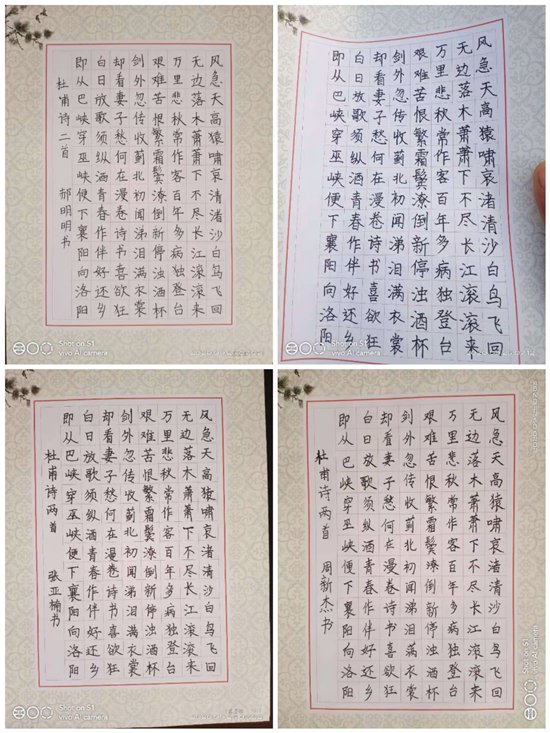 风急天高猿啸哀渚清沙白鸟飞回
无边落木萧萧下不尽长江滚滚来
万里悲秋常作客百年多病独登台
艰难苦恨繁霜鬓潦倒新停浊酒杯
剑外忽传收蓟北初闻涕泪满衣裳
却看妻子愁何在漫卷诗书喜欲狂
白日放歌须纵酒青春作伴好还乡
即从巴峡穿巫峡便下襄阳向洛阳
杜甫诗二首 郝明明书
Shot on S1
vivo AI camera
风急天高猿啸哀渚清沙白鸟飞回
无边落木萧萧下不尽长江滚滚来
万里悲秋常作客百年多病独登台
艰难苦恨繁霜鬓潦倒新停浊酒杯
剑外忽传收蓟北初闻涕泪满衣裳
却看妻子愁何在漫卷诗书喜欲狂
白日放歌须纵酒青春作伴好还乡
即从巴峡穿巫峡便下襄阳向洛阳
Shot on S1
vivo AI camera
风急天高猿啸哀渚清沙白鸟飞回
无边落木萧萧下不尽长江滚滚来
万里悲秋常作客百年多病独登台
艰难苦恨繁霜鬓潦倒新停浊酒杯
剑外忽传收蓟北初闻涕泪满衣裳
却看妻子愁何在漫卷诗书喜欲狂
白日放歌须纵酒青春作伴好还乡
即从巴峡穿巫峡便下襄阳向洛阳
杜甫诗两首 张亚楠书
Shot on S1
vivo AI camera
风急天高猿啸哀渚清沙白鸟飞回
无边落木萧萧下不尽长江滚滚来
万里悲秋常作客百年多病独登台
艰难苦恨繁霜鬓潦倒新停浊酒杯
剑外忽传收蓟北初闻涕泪满衣裳
却看妻子愁何在漫卷诗书喜欲狂
白日放歌须纵酒青春作伴好还乡
即从巴峡穿巫峡便下襄阳向洛阳
杜甫诗两首 周新杰书
Shot on S1
vivo AI camera